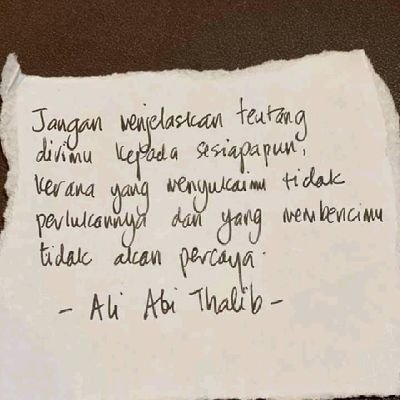 Jangan menjelaskan tentang
dirimu kepada sesiapapun,
kerana yang menyukaimu tidak
perlukannya dan yang membencimu
tidak akan percaya.
- Ali Abi Thalib -